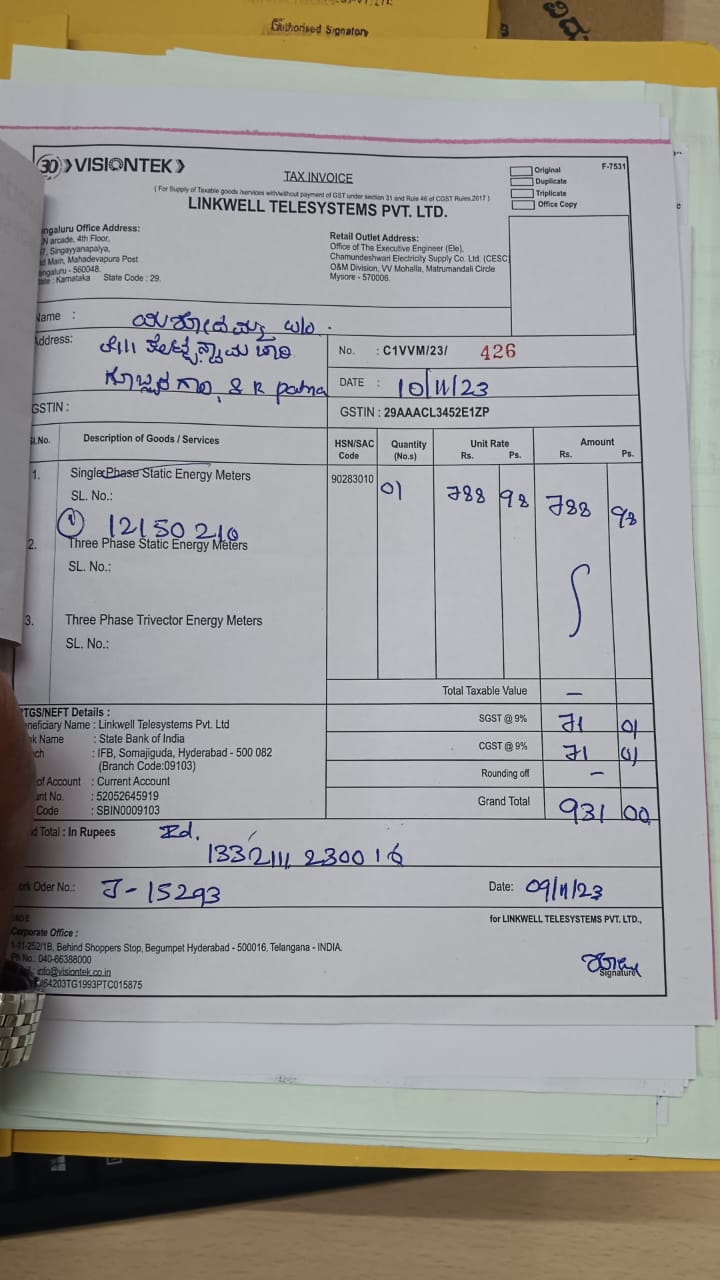 Authorised Signatory
30 VISIONTEK
TAX INVOICE
Original
Duplicate
Triplicate
Office Copy
F-7531
( For Supply of Taxable goods /services with/without payment of GST under section 31 and Rule 46 of CGST Rules.2017 )
LINKWELL TELESYSTEMS PVT. LTD.
ngaluru Office Address:
N arcade, 4th Floor,
7, Singayyanapalya,
d Main, Mahadevapura Post
engaluru - 560048.
ate : Karnataka State Code : 29.
Retail Outlet Address:
Office of The Executive Engineer (Ele),
Chamundeshwari Electricity Supply Co. Ltd. (CESC)
O&M Division, VV Mohalla, Matrumandali Circle
Mysore - 570006.
Name :
ಯಶೋದಮ್ಮ w/o
Address:
S R Patna
No. : C1VVM/23/ 426
DATE : 10/11/23
GSTIN :
GSTIN : 29AAACL3452E1ZP
Sl.No. Description of Goods / Services HSN/SAC Code Quantity (No.s) Unit Rate Rs. Ps. Amount Rs. Ps.
1. Single Phase Static Energy Meters 90283010 01 788 98 788 98
SL. No.:
① 12150210
2. Three Phase Static Energy Meters
SL. No.:
3. Three Phase Trivector Energy Meters
SL. No.:
Total Taxable Value —
TGS/NEFT Details :
eneficiary Name : Linkwell Telesystems Pvt. Ltd
nk Name : State Bank of India
ch : IFB, Somajiguda, Hyderabad - 500 082
(Branch Code:09103)
of Account : Current Account
unt No. : 52052645919
Code : SBIN0009103
SGST @ 9% 71 01
CGST @ 9% 71 01
Rounding off —
Grand Total 931 00
d Total : In Rupees
133211230016
ork Oder No.: J-15293
Date: 09/11/23
for LINKWELL TELESYSTEMS PVT. LTD.,
Corporate Office :
1-11-252/1B, Behind Shoppers Stop, Begumpet Hyderabad - 500016, Telangana - INDIA.
Ph No.: 040-66388000
info@visiontek.co.in
64203TG1993PTC015875
Signature